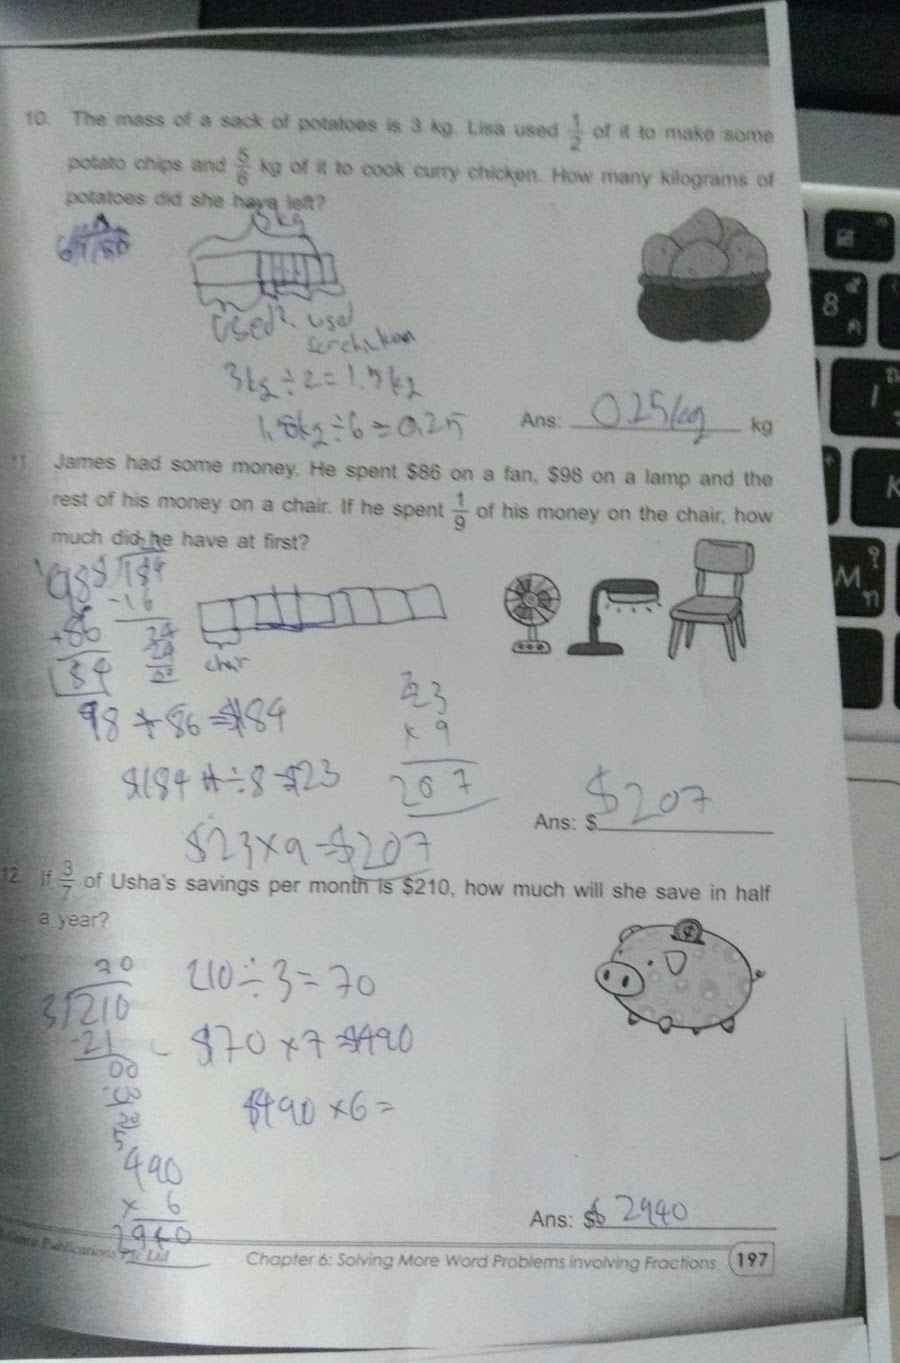 10. The mass of a sack of potatoes is 3 kg. Lisa used 1/2 of it to make some
potato chips and 5/6 kg of it to cook curry chicken. How many kilograms of
potatoes did she have left?
3kg
used
used
for chicken
3kg ÷ 2 = 1.5kg
1.5kg ÷ 6 = 0.25
Ans: 0.25kg kg
11. James had some money. He spent $86 on a fan, $98 on a lamp and the
rest of his money on a chair. If he spent 1/9 of his money on the chair, how
much did he have at first?
98
+86
184
8)184
-16
24
24
chair
98 + 86 = $184
$184 ÷ 8 = $23
23
x 9
207
$23 x 9 = $207
Ans: $ $207
12. If 3/7 of Usha's savings per month is $210, how much will she save in half
a year?
70
3)210
-21
00
210 ÷ 3 = 70
$70 x 7 = $490
$490 x 6 =
5
490
x 6
2940
Ans: $ $2940
Publications Pte Ltd
Chapter 6: Solving More Word Problems involving Fractions 197
8
M
K
?